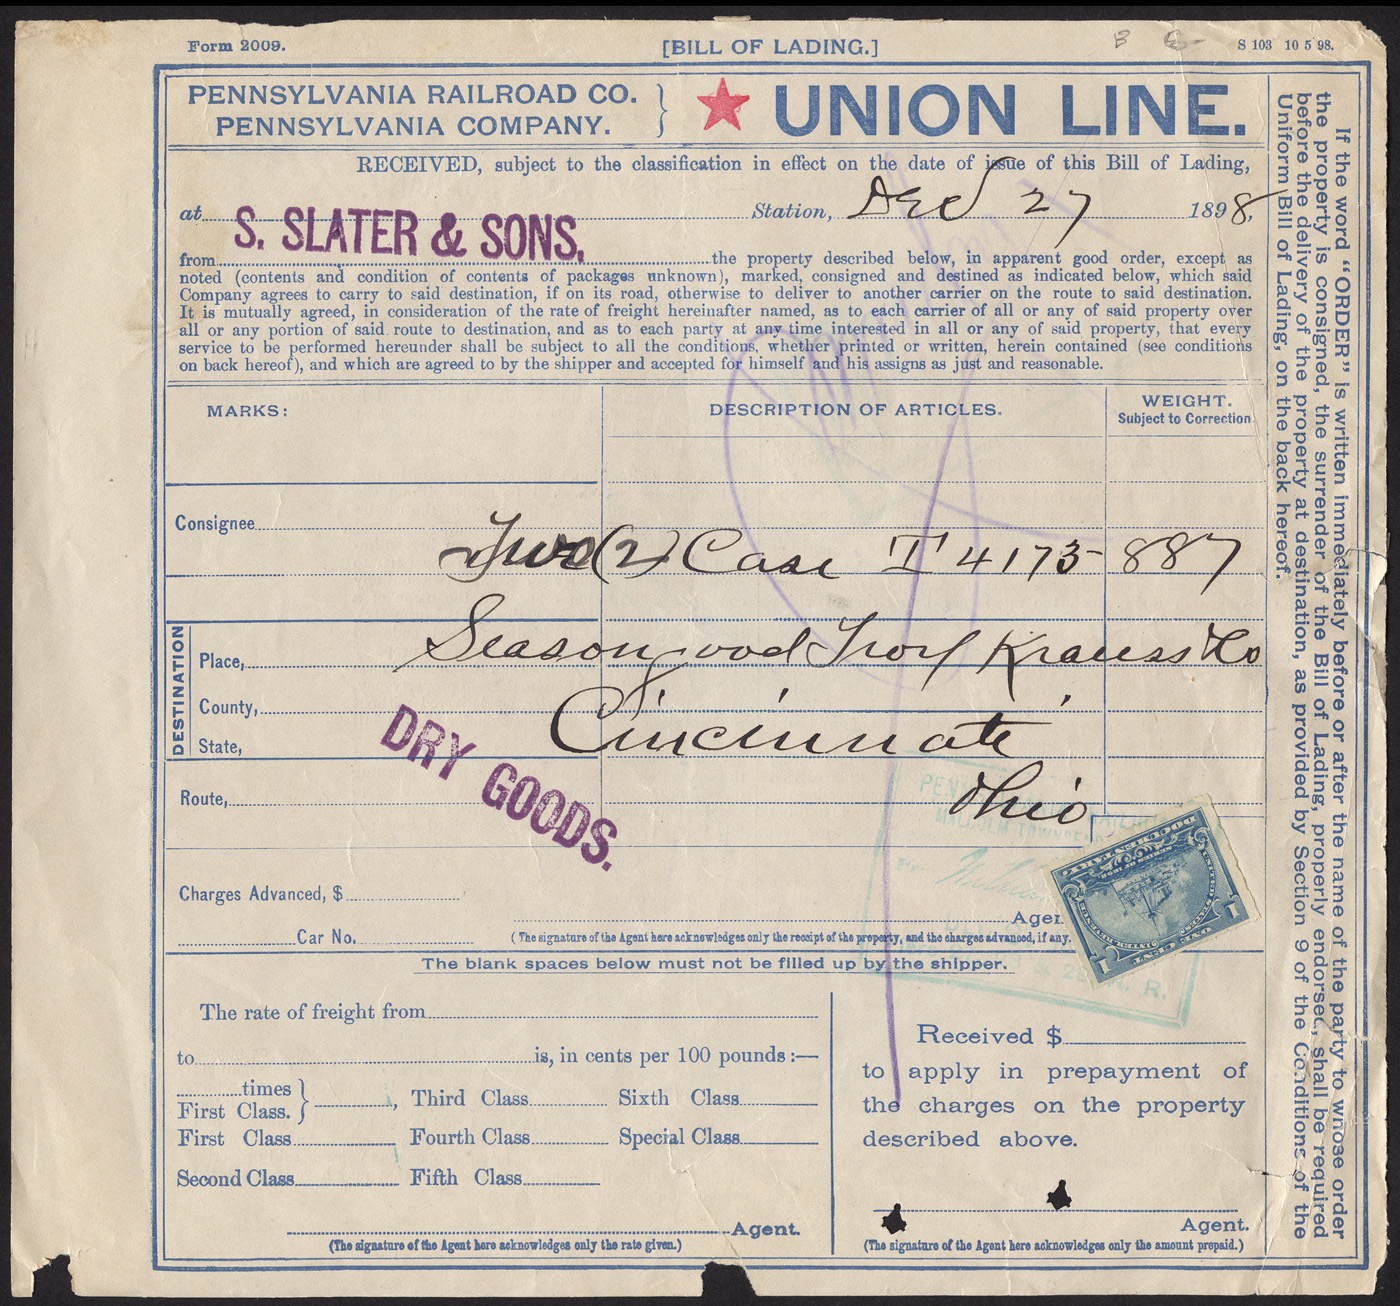 Form 2009.
[BILL OF LADING.]
S 103 10 5 98.
PENNSYLVANIA RAILROAD CO.
PENNSYLVANIA COMPANY.
UNION LINE.
RECEIVED, subject to the classification in effect on the date of issue of this Bill of Lading,
at Station, Dec 27 1898,
S. SLATER & SONS.
from the property described below, in apparent good order, except as
noted (contents and condition of contents of packages unknown), marked, consigned and destined as indicated below, which said
Company agrees to carry to said destination, if on its road, otherwise to deliver to another carrier on the route to said destination.
It is mutually agreed, in consideration of the rate of freight hereinafter named, as to each carrier of all or any of said property over
all or any portion of said route to destination, and as to each party at any time interested in all or any of said property, that every
service to be performed hereunder shall be subject to all the conditions, whether printed or written, herein contained (see conditions
on back hereof), and which are agreed to by the shipper and accepted for himself and his assigns as just and reasonable.
MARKS:
DESCRIPTION OF ARTICLES.
WEIGHT.
Subject to Correction
Consignee
Two (2) Case T 4173 - 887
DESTINATION
Place, Seasongood Krauss Co
County, Cincinnati
State,
DRY GOODS.
Route, Ohio
Charges Advanced, $
Agen
Car No. (The signature of the Agent here acknowledges only the receipt of the property, and the charges advanced, if any.
The blank spaces below must not be filled up by the shipper.
The rate of freight from
to is, in cents per 100 pounds:—
times
First Class. } , Third Class Sixth Class
First Class Fourth Class Special Class
Second Class Fifth Class
Agent.
(The signature of the Agent here acknowledges only the rate given.)
Received $
to apply in prepayment of
the charges on the property
described above.
Agent.
(The signature of the Agent here acknowledges only the amount prepaid.)
If the word "ORDER" is written immediately before or after the name of the party to whose order
the property is consigned, the surrender of the Bill of Lading, properly endorsed, shall be required
before the delivery of the property at destination, as provided by Section 9 of the Conditions of the
Uniform Bill of Lading, on the back hereof.
DOCUMENTARY
SERIES OF 1898
UNITED STATES INTERNAL REVENUE
ONE CENT
1 1
MALCOLM
R. R.